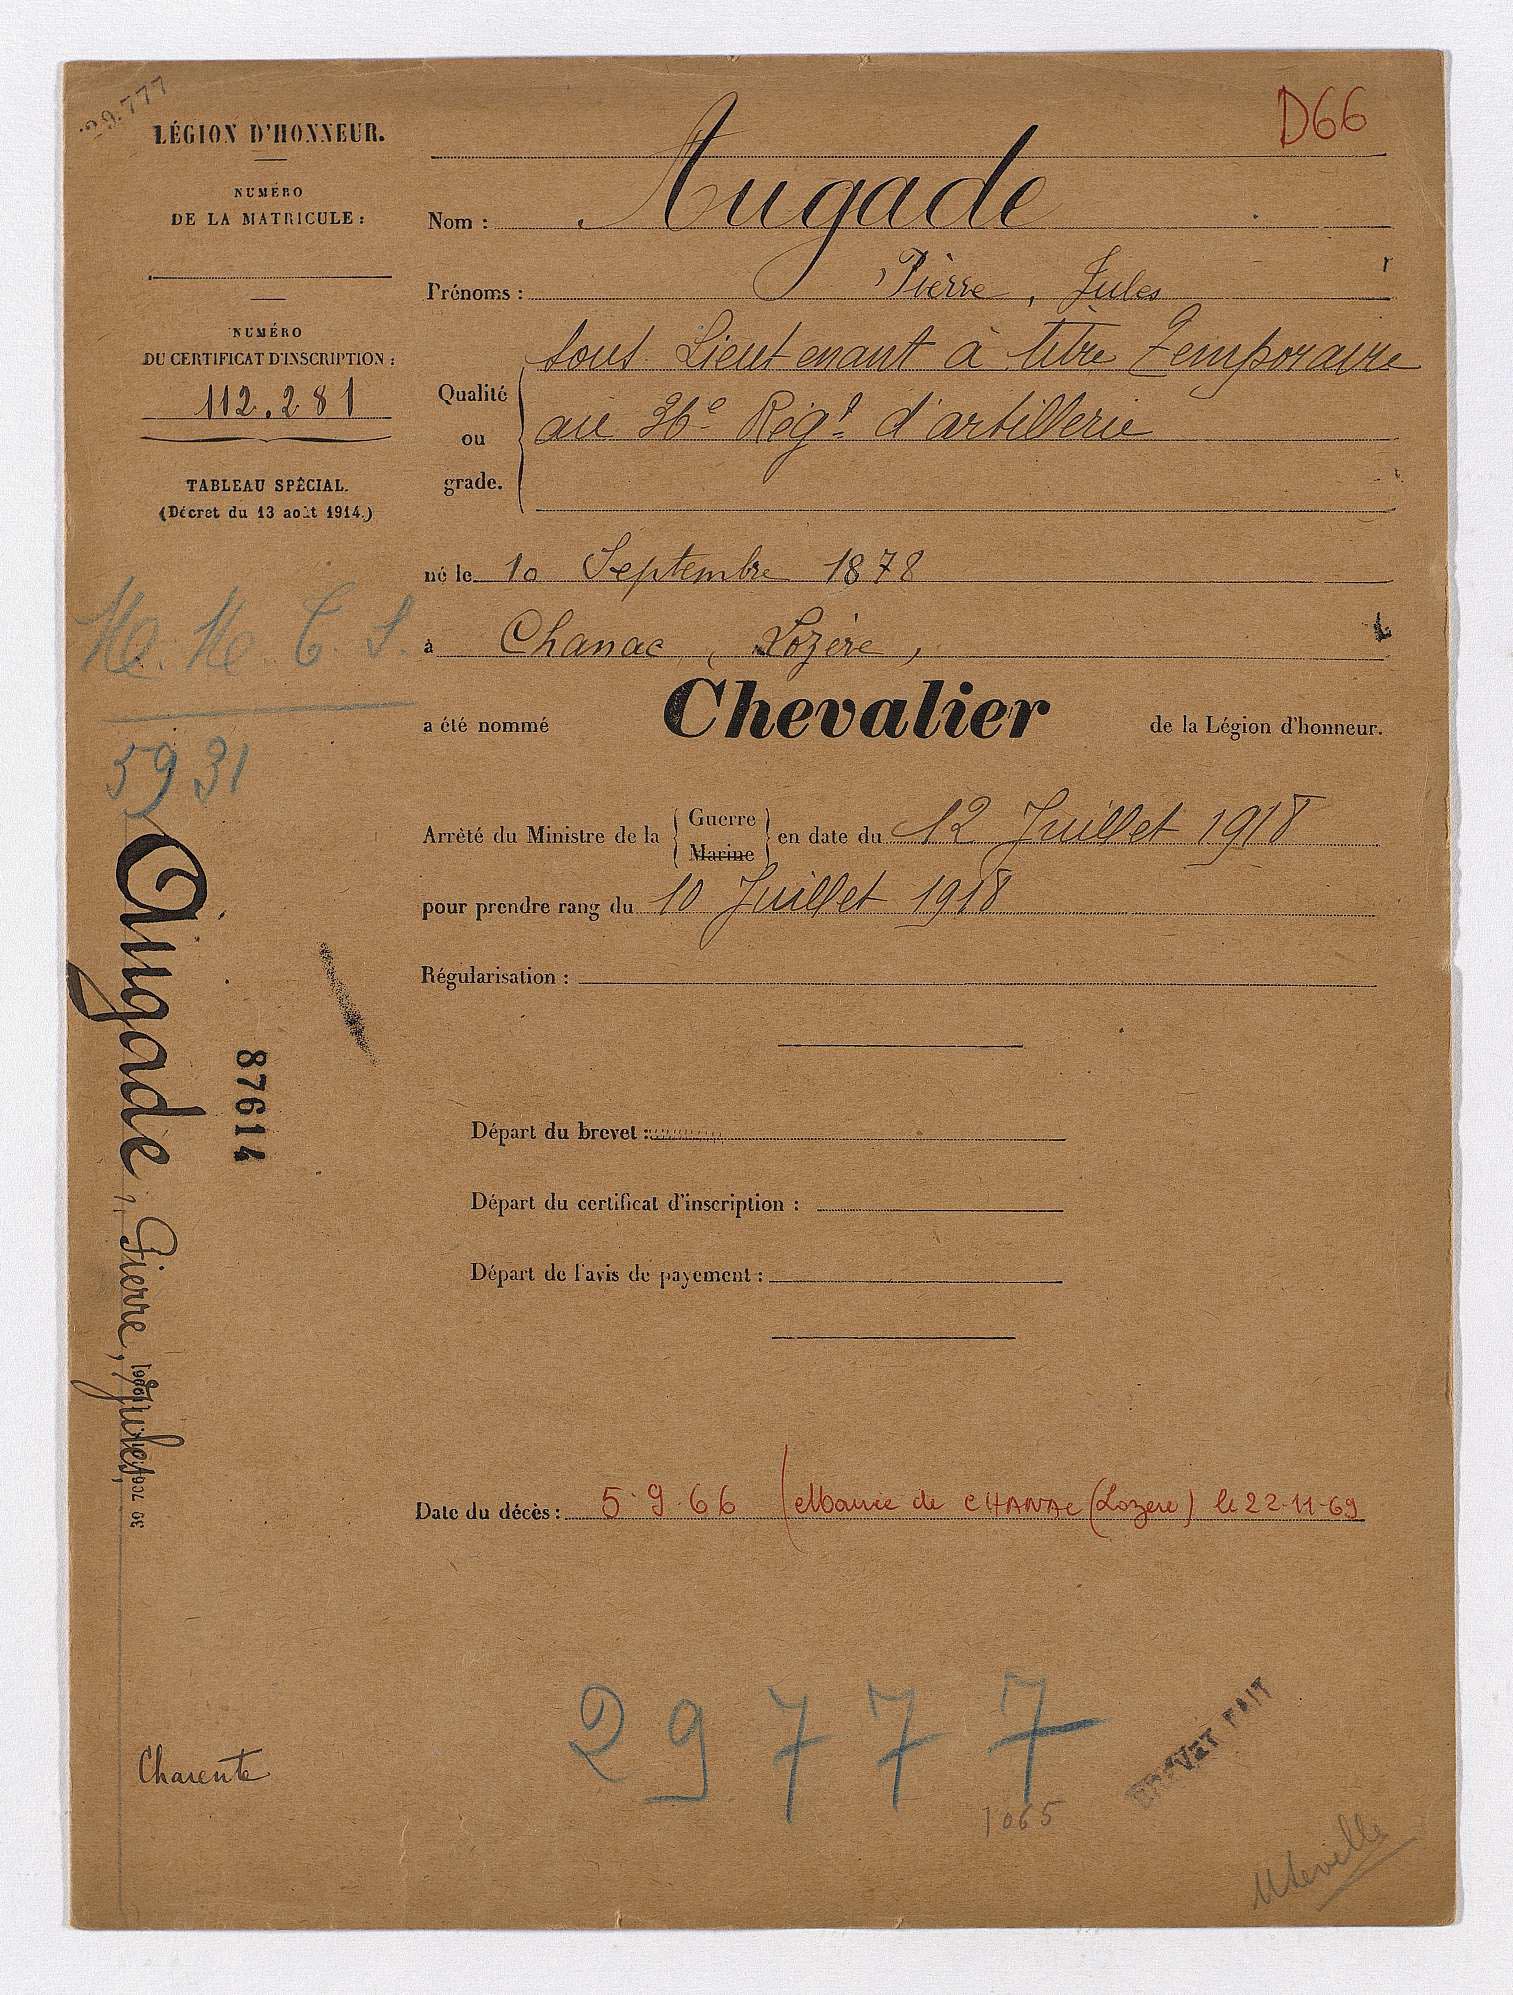 29.777
D66
LÉGION D'HONNEUR.
NUMÉRO
DE LA MATRICULE :
NUMÉRO
DU CERTIFICAT D'INSCRIPTION :
112.281
TABLEAU SPÉCIAL.
(Décret du 13 août 1914.)
5931
Augade, Pierre, Jules,
87614
Nom : Augade
Prénoms : Pierre, Jules
Qualité ou grade. Sous Lieutenant à titre Temporaire
au 36e Régt d'artillerie
né le 10 Septembre 1878
à Chanac, (Lozère,
a été nommé Chevalier de la Légion d'honneur.
Arrêté du Ministre de la { Guerre Marine } en date du 12 Juillet 1918
pour prendre rang du 10 Juillet 1918
Régularisation :
Départ du brevet :
Départ du certificat d'inscription :
Départ de l'avis de payement :
Date du décès : 5.9.66 (Mairie de CHANAC (Lozère) le 22-11-69
Charente
29777
1065
BREVET FAIT